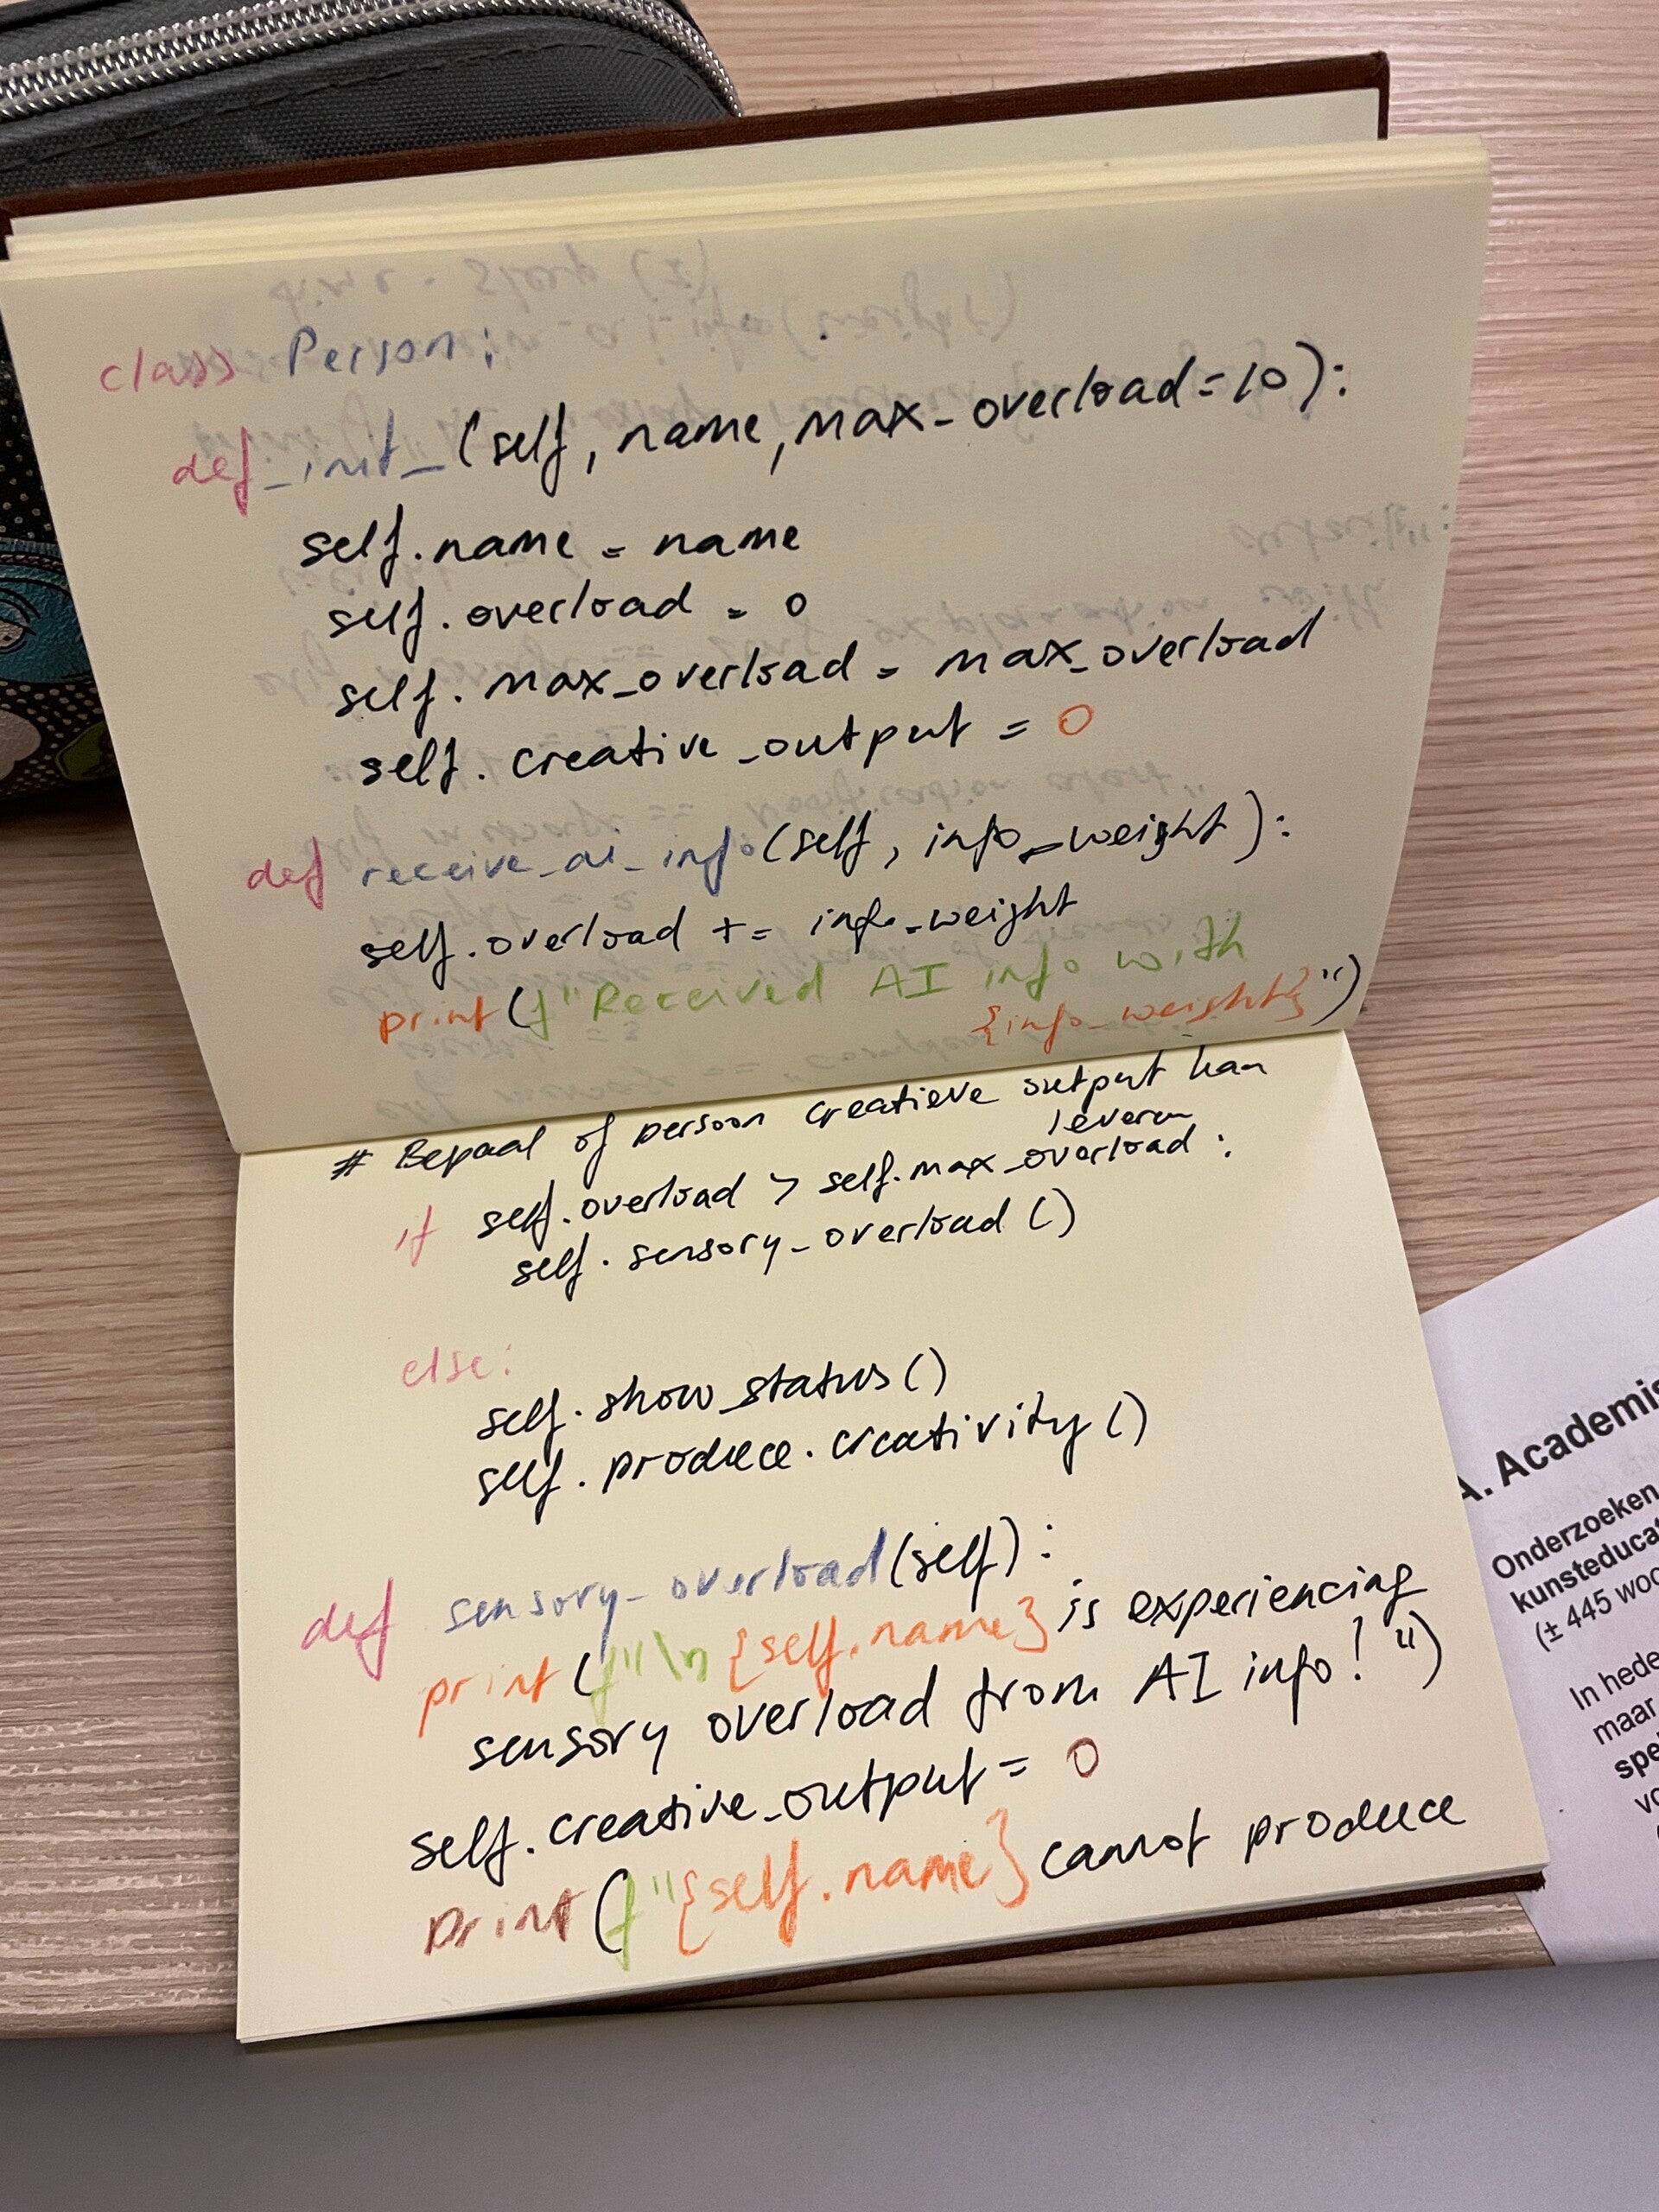 class Person:
def_init_(self, name, max_overload=10):
self.name = name
self.overload = 0
self.max_overload = max_overload
self.creative_output = 0
def receive_ai_info(self, info_weight):
self.overload += info_weight
print(f"Received AI info with
{info_weight}")
# Bepaal of persoon creatieve output kan
leveren
if self.overload > self.max_overload:
self.sensory_overload()
else:
self.show_status()
self.produce.creativity()
def sensory_overload(self):
print(f"\n{self.name} is experiencing
sensory overload from AI info!")
self.creative_output = 0
print(f"{self.name} cannot produce
A. Academis
Onderzoeken
kunsteducat
(± 445 woo
In hede
maar
spe
vo